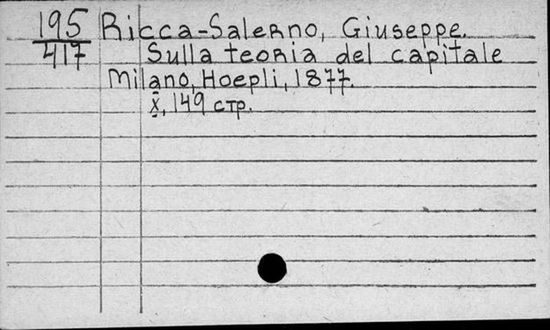 195 Ricca-Salerno, Giuseppe.
417 Sulla teoria del capitale
Milano, Hoepli, 1877.
X, 149 стр.